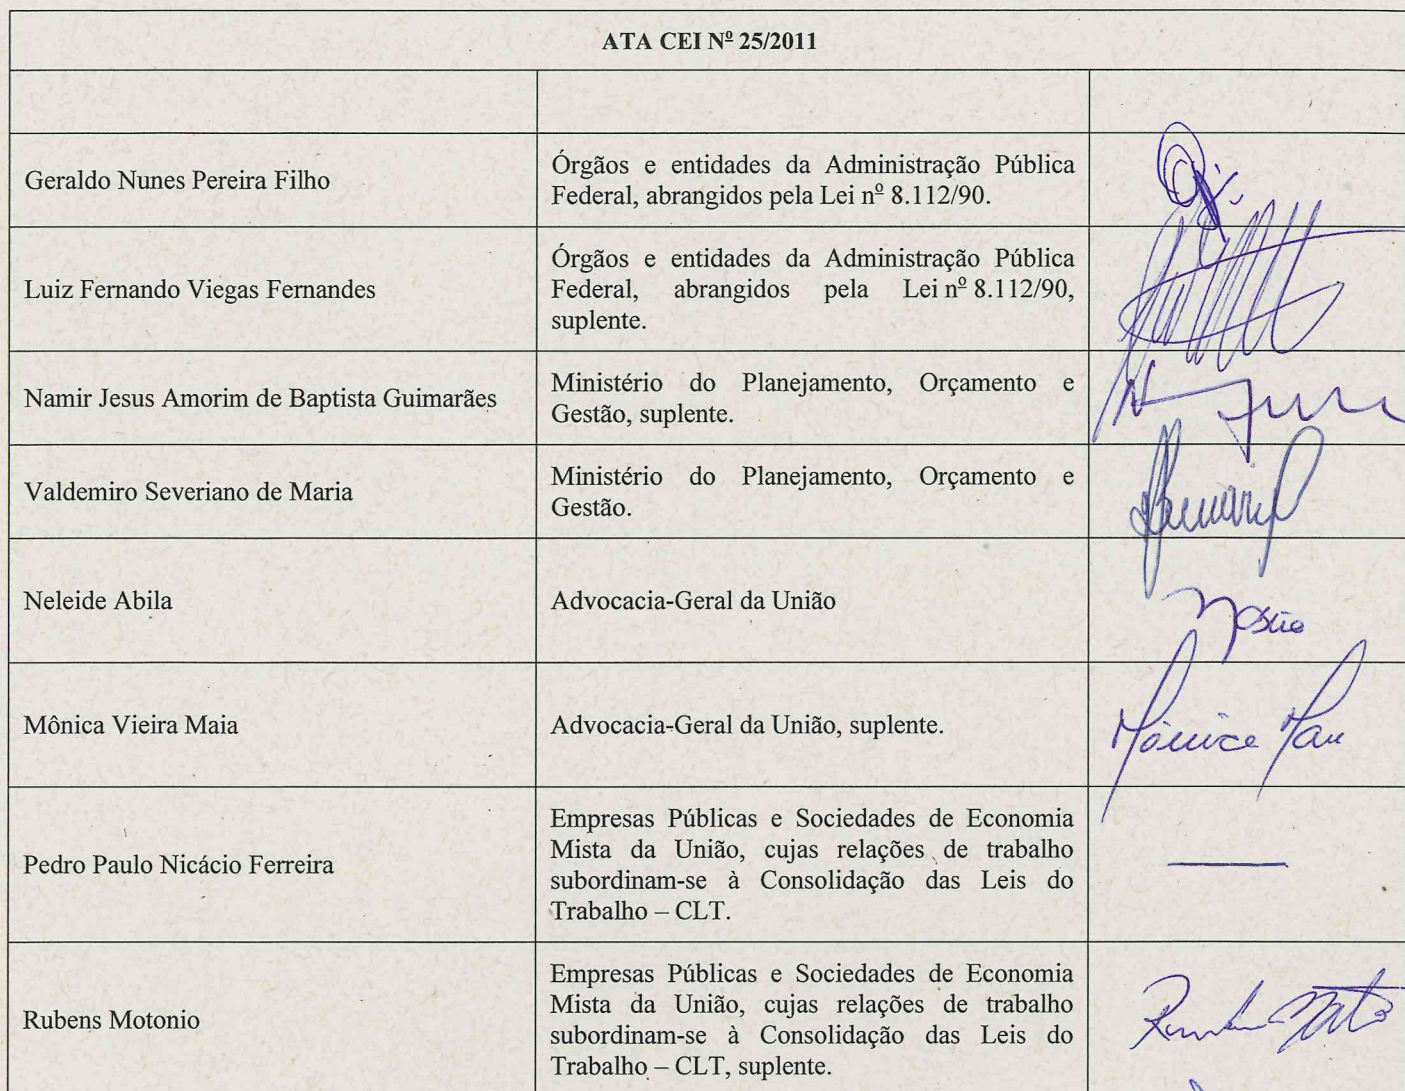 ATA CEI Nº 25/2011
Geraldo Nunes Pereira Filho
Órgãos e entidades da Administração Pública
Federal, abrangidos pela Lei nº 8.112/90.
Luiz Fernando Viegas Fernandes
Órgãos e entidades da Administração Pública
Federal, abrangidos pela Lei nº 8.112/90,
suplente.
Namir Jesus Amorim de Baptista Guimarães
Ministério do Planejamento, Orçamento e
Gestão, suplente.
Valdemiro Severiano de Maria
Ministério do Planejamento, Orçamento e
Gestão.
Neleide Abila
Advocacia-Geral da União
Mônica Vieira Maia
Advocacia-Geral da União, suplente.
Mônica
Pedro Paulo Nicácio Ferreira
Empresas Públicas e Sociedades de Economia
Mista da União, cujas relações de trabalho
subordinam-se à Consolidação das Leis do
Trabalho – CLT.
Rubens Motonio
Empresas Públicas e Sociedades de Economia
Mista da União, cujas relações de trabalho
subordinam-se à Consolidação das Leis do
Trabalho – CLT, suplente.